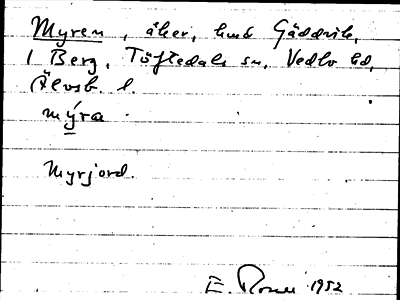 Myren, åker, hmd Gäddvik,
1 Berg, Töftedals sn, Vedbo hd,
Älvsb. l.
mýra.
Myrjord.
E. 1952